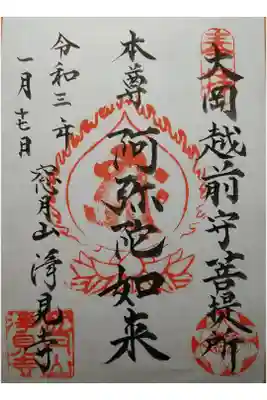 大岡越前守菩提所
本尊
阿弥陀如来
令和三年
一月十七日
窓月山 浄見寺